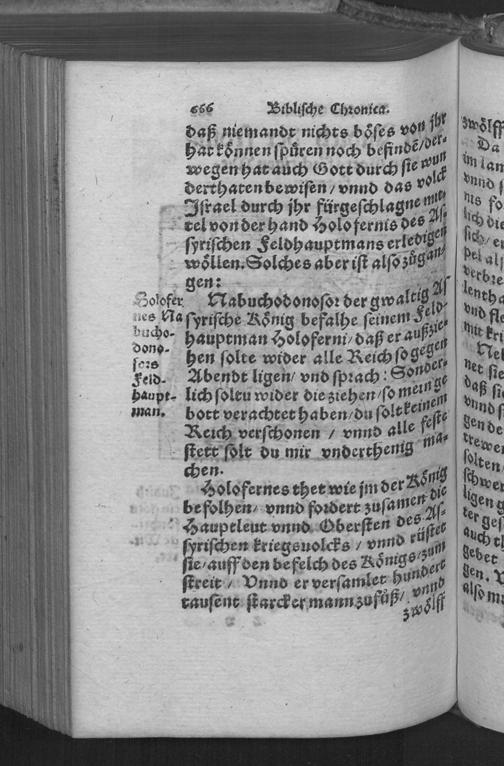 666 Biblische Chronica.
daß niemandt nichts böses von jhr
hat können spüren noch befindẽ/der-
wegen hat auch Gott durch sie wun
derthaten bewisen / vnnd das volck
Jsrael durch jhr fürgeschlagne mit-
tel von der hand Holofernis des As-
syrischen Feldhauptmans erledigen
wöllen. Solches aber ist also zůgan-
gen:
Holofer
nes Na
bucho-
dono-
sors
Feld-
haupt-
man.
Nabuchodonosor der gwaltig As
syrische König befalhe seinem Feld-
hauptman Holoferni/ daß er außzie-
hen solte wider alle Reich so gegen
Abendt ligen/ vnd sprach: Sonder-
lich soltu wider die ziehen/ so mein ge
bott verachtet haben/ du solt keinem
Reich verschonen / vnnd alle feste
stett solt du mir vnderthenig ma-
chen.
Holofernes thet wie jm der König
befolhen/ vnnd fordert zusamen die
Hauptleut vnnd Obersten des As-
syrischen kriegsuolcks / vnnd rüstet
sie/ auff den befelch des Königs/ zum
streit / Vnnd er versamlet hundert
tausent starcker mann zufůß/ vnnd
zwölff
zwölff
Da
im lan
vnnd
nis so
lich die
sich/ er
pel als
verbre
lentha
vnd fle
mit kri
Neb
net sie
daß si
vnnd s
gen de
trewer
solten
schwer
ligen g
ter ges
auch th
gebet
gen. V
also m